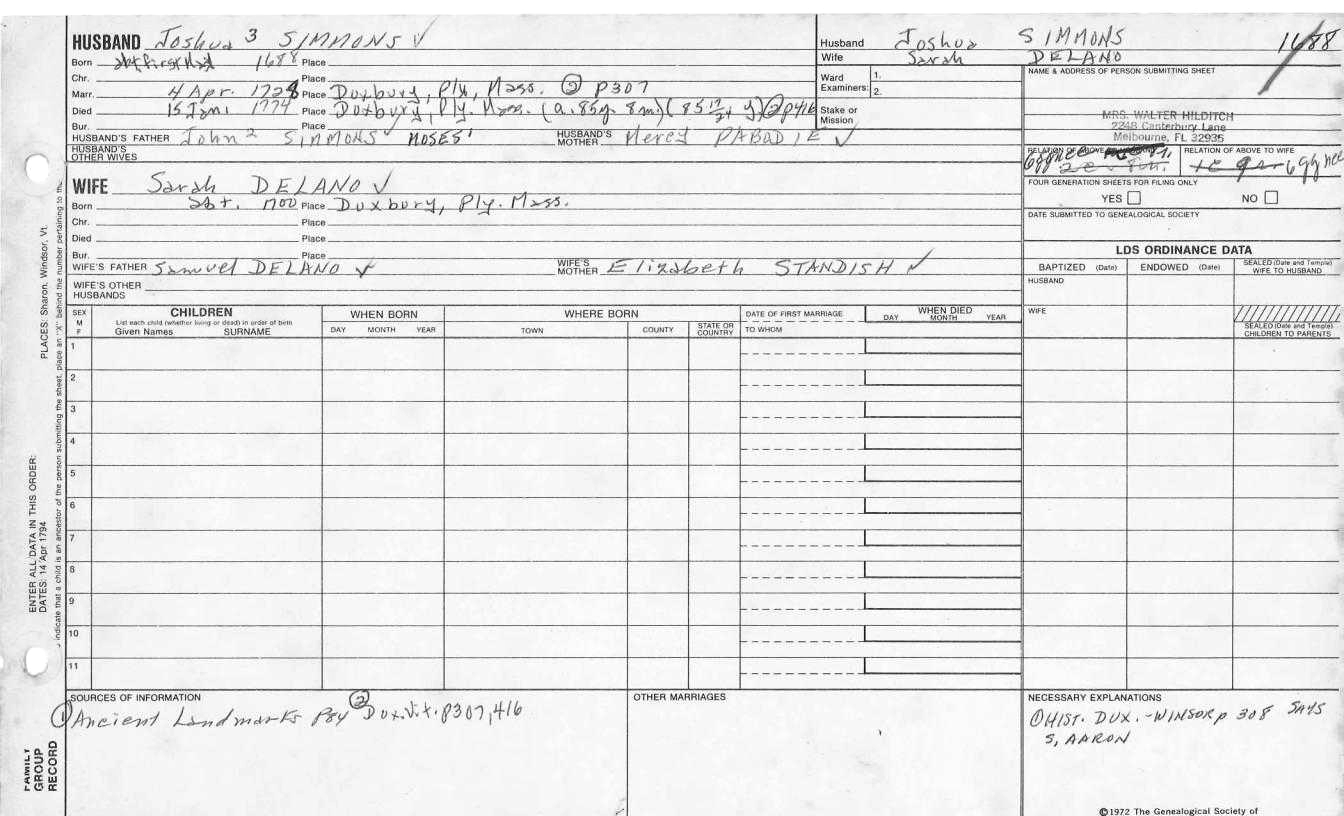 HUSBAND Joshua 3 SIMMONS √
Born abt first Had 1688 Place
Chr. Place
Marr. 4 Apr. 1728 Place Duxbury, Ply, Mass. ② P307
Died 15 Jan. 1774 Place Duxbury, Ply. Mass. (a. 85y. 8m) (85 y) ② p416
Bur. Place
HUSBAND'S FATHER John 2 SIMMONS √ MOSES' HUSBAND'S MOTHER Mercy PABODIE √
HUSBAND'S OTHER WIVES
WIFE Sarah DELANO √
Born abt. 1700 Place Duxbury, Ply. Mass.
Chr. Place
Died Place
Bur. Place
WIFE'S FATHER Samuel DELANO √ WIFE'S MOTHER Elizabeth STANDISH √
WIFE'S OTHER HUSBANDS
Husband Joshua SIMMONS 1688
Wife Sarah DELANO
Ward Examiners: 1. 2.
Stake or Mission
NAME & ADDRESS OF PERSON SUBMITTING SHEET
MRS. WALTER HILDITCH
2248 Canterbury Lane
Melbourne, FL 32935
RELATION OF ABOVE RELATION OF ABOVE TO WIFE
6ggnce 6ggnce
FOUR GENERATION SHEETS FOR FILING ONLY
YES NO
DATE SUBMITTED TO GENEALOGICAL SOCIETY
LDS ORDINANCE DATA
BAPTIZED (Date) ENDOWED (Date) SEALED (Date and Temple) WIFE TO HUSBAND
HUSBAND
WIFE
SEALED (Date and Temple) CHILDREN TO PARENTS
SEX M F
CHILDREN
List each child (whether living or dead) in order of birth
Given Names SURNAME
WHEN BORN
DAY MONTH YEAR
WHERE BORN
TOWN COUNTY STATE OR COUNTRY
DATE OF FIRST MARRIAGE
TO WHOM
WHEN DIED
DAY MONTH YEAR
1
2
3
4
5
6
7
8
9
10
11
SOURCES OF INFORMATION
① Ancient Landmarks P84 ② Dux.V.t. P307, 416
OTHER MARRIAGES
NECESSARY EXPLANATIONS
① HIST. DUX. - WINSOR p 308 SAYS
S, AARON
©1972 The Genealogical Society of
PLACES: Sharon, Windsor, Vt.
indicate that a child is an ancestor of the person submitting the sheet, place an "X" behind the number pertaining to the
ENTER ALL DATA IN THIS ORDER:
DATES: 14 Apr 1794
FAMILY GROUP RECORD